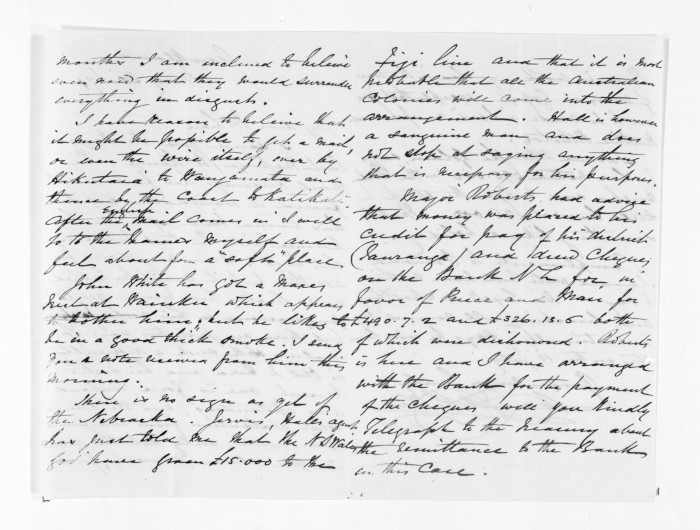 months I am inclined to believe
even now that they would surrender
everything in disgust.
I have reason to believe that
it might be possible to get a mail,
or even the wire itself, over by
Hikutaia to Wangamata and
thence by the coast to Katikati.
After the English Mail comes in I will
go to the Thames myself and
feel about for a "soft" place
John White has got a Maori
at Waiuku which appears
to bother him, but he likes to
be in a good thick smoke. I send
you a note received from him this
morning.
There is no sign as yet of
the Nebraska. Jervis, Hall's agent
has just told me that the N S Wales
Govt have given £15.000 to the
Fiji line and that it is most
probable that all the Australian
Colonies will come into the
arrangement. Hall is however
a sanguine man and does
not stop at saying anything
that is necessary for his purposes.
Major Roberts had advice
that money was placed to his
credit for pay of his district
(Tauranga) and issued Cheques
on the Bank N Z for, in
favor of and Man for
£490.7.2 and £326.13.6 both
of which were dishonored. Roberts
is here and I have arranged
with the Bank for the payment
of the cheques will you kindly
Telegraph to the Treasury about
the remittance to the Bank
in this case.